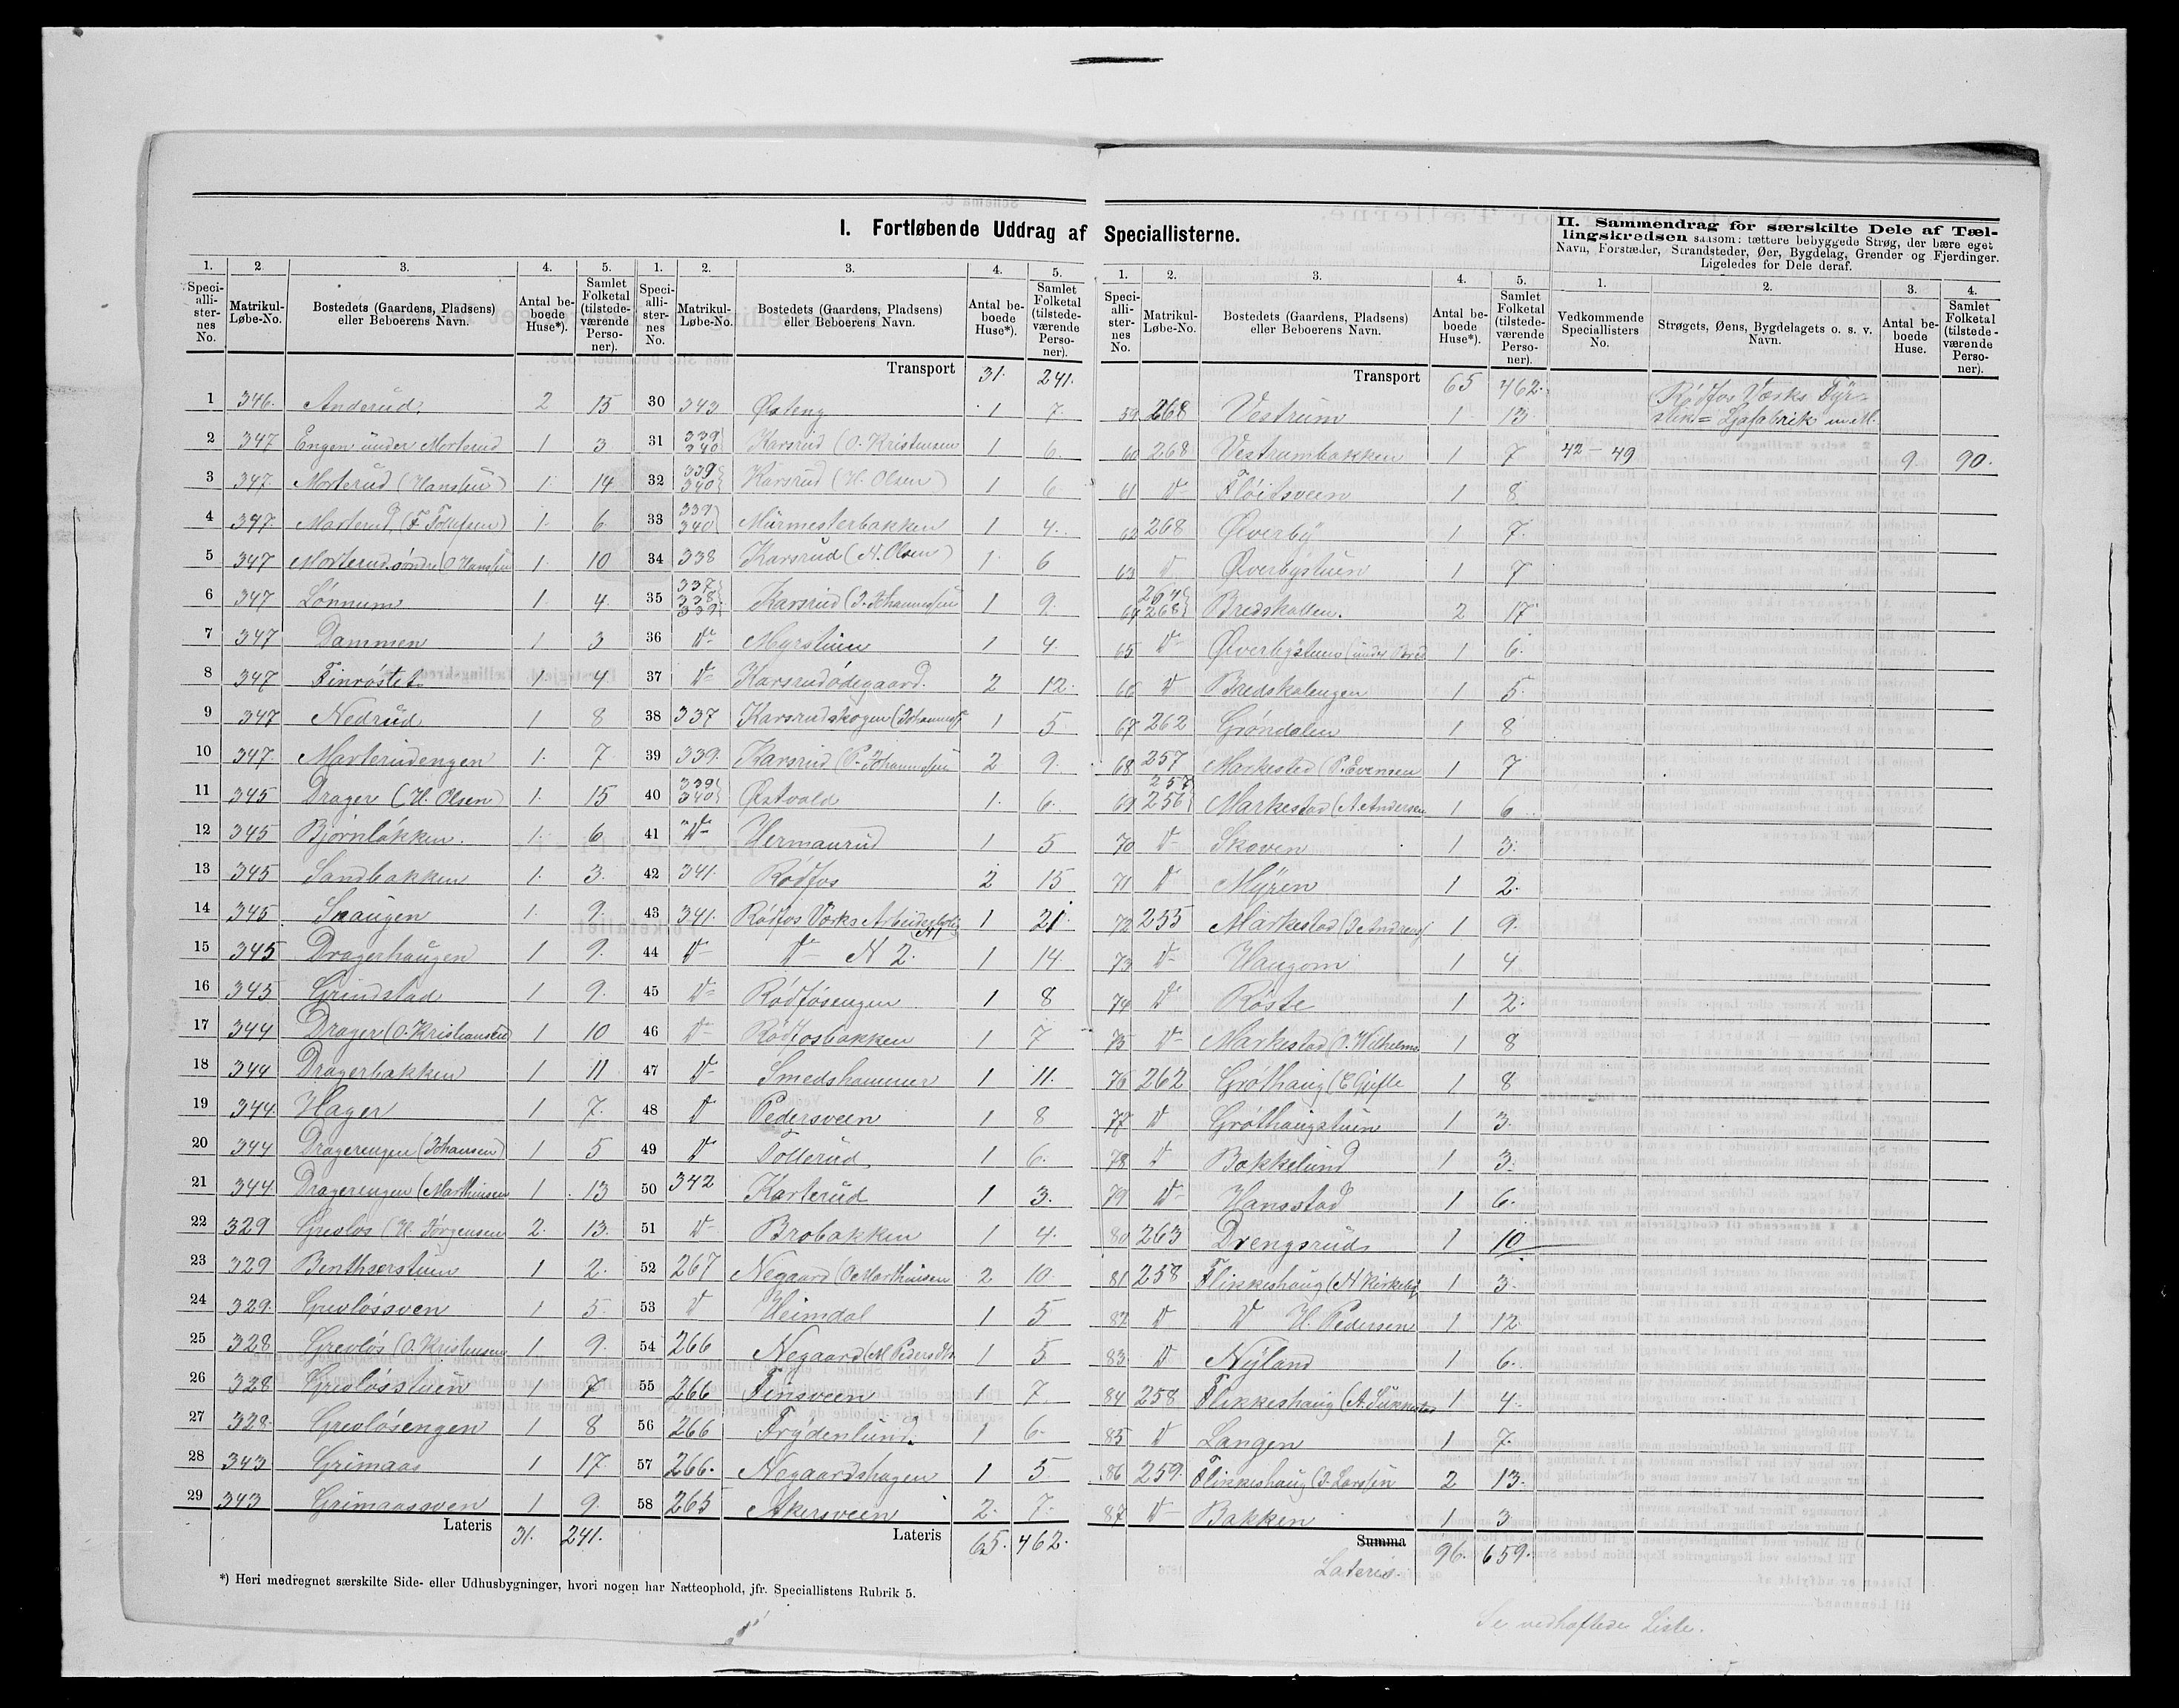 I. Fortløbende Uddrag af Speciallisterne.
1. 2. 3. 4. 5.
Speci-alli-ster-nes No. Matrikul-Løbe-No. Bostedets (Gaardens, Pladsens) eller Beboerens Navn. Antal be-boede Huse*). Samlet Folketal (tilstede-værende Perso-ner).
1 346. Anderud 2 15
2 347 Engen under Morterud 1 3
3 347 Morterud (Hansen) 1 14
4 347 Morterud (F. Tolufsen) 1. 6
5 347 Morterud søndre (O Hansen 1 10
6 347 Lønnum 1 4.
7 347 Dammen 1 3
8 347 Finrøstet 1. 4
9 347 Nedrud 1 8
10 347. Morterudengen 1. 7
11 345 Drager (H. Olsen) 1. 15
12 345 Bjørnløkken. 1. 6
13 345 Sandbakken 1. 3.
14 345 Snaugen 1. 9.
15 345 Dragerhaugen 1 9.
16 345 Grindstad 1 9.
17 344 Drager (O. Kristiansen) 1 10
18 344 Dragerbakken 1 11
19 344. Hager 1 7.
20 344 Dragerengen (Johansen) 1 5
21 344 Dragerengen (Marthinsen 1 13
22 329 Grevløs (H. Jørgensen 2. 13.
23 329 Benthserstuen 1 2.
24 329. Grevløsven 1 5.
25 328 Grevløs (O. Kristensen 1 9.
26 328 Grevløsstuen 1 7
27 328. Grevløsengen 1 8
28 343 Grimaas 1 17.
29 343 Grimaassven 1 9.
Lateris 31. 241.
1. 2. 3. 4. 5.
Speci-alli-ster-nes No. Matrikul-Løbe-No. Bostedets (Gaardens, Pladsens) eller Beboerens Navn. Antal be-boede Huse*). Samlet Folketal (tilstede-værende Perso-ner).
Transport 31. 241.
30 343 Østeng 1 7.
31 339 340 Karsrud (O. Kristensen 1 6.
32 339 340 Karsrud (H. Olsen) 1 6
33 339 340 Murmesterbakken 1 4.
34 338 Karsrud (N. Olsen) 1. 6
35 337 338 339 Karsrud (J. Johannesen 1 9.
36 Do Myrstuen 1 4.
37 Do Karsrudødegaard. 2 12.
38 337 Karsrudskogen (Johannes 1 5
39 339. Karsrud (P. Johannesen 2 9.
40 339 340 Østvold 1. 6.
41 Do Hermanrud 1 5
42 341. Rødfos 2 15
43 341. Rødfos Værks Arbeiderbolig N1 1 21.
44 Do Do N 2. 1 14
45 Do Rødfosengen 1 8
46 Do Rødfosbakken 1 7
47 Do Smedshammer 1 11.
48 Do Pedersveen 1 8
49 Do Tollerud 1 6.
50 342 Karterud 1 3.
51 Do Brobakken 1 4.
52 267 Negaard (O Marthinsen 2 10.
53 Do Heimdal 1 5
54 266 Negaard (M Peders 1 5
55 266 Finsveen 1 7.
56 266 Frydenlund. 1 6.
57 266. Negaardshagen 1 5
58 265 Akersveen 2. 7.
Lateris 65. 462.
*) Heri medregnet særskilte Side- eller Udhusbygninger, hvori nogen har Natteophold, jfr. Speciallistens Rubrik 5.
1. 2. 3. 4. 5.
Speci-alli-ster-nes No. Matrikul-Løbe-No. Bostedets (Gaardens, Pladsens) eller Beboerens Navn. Antal be-boede Huse*). Samlet Folketal (tilstede-værende Perso-ner).
Transport 65 462.
59 268 Vestrum 1 13.
60 268 Vestrumbakken 1 7
61 Do Fløitsveen 1 8
62 268 Øverby 1 7.
63 Do Øverbystuen 1 7
64 264 268 Bredskallen. 2 17
65 Do Øverbystuen (under Bred 1 6.
66 Do Bredskalengen 1 5.
67 262 Grøndalen 1 8
68 257 Markestad (P. Evensen 1 7
69 257 256 Markestad (A. Andersen 1 6
70 Do Skoven 1 3.
71 Do Myren 1 2.
72 255 Markestad (J. Andreas 1 9.
73 Do Haugom 1 4
74 Do Røste 1 2.
75 Do Markestad (O. Wilhelms 1 8
76 262 Grøthaug (E Gifle 1 8
77 Do Grøthaugstuen 1 3.
78 Do Bakkelund 1 3.
79 Do Hansstad 1 6.
80 263 Drengsrud 1 10
81 258 Flikkeshaug (N Kirkeby 1 3.
82 Do Do H. Pedersen 1 12
83 Do Nyland 1 6.
84 258 Flikkeshaug (A. 1 4.
85 Do Langen 1 7.
86 259. Flikkeshaug (J. Larsen 2 13.
87 Do Bakken 1 3
Summa 96. 659.
Lateris.
II. Sammendrag for særskilte Dele af Tæl-
lingskredsen saasom: tættere bebyggede Strøg, der bære eget
Navn, Forstæder, Strandsteder, Øer, Bygdelag, Grender og Fjerdinger.
Ligeledes for Dele deraf.
1. 2. 3. 4.
Vedkommende Speciallisters No. Strøgets, Øens, Bygdelagets o. s. v. Navn. Antal be-boede Huse. Samlet Folketal (tilstede-værende Perso-ner).
Rødfos Værks Fyr-
stik= Ljafabrik m.M.
42 - 49 9. 90.
Se vedhæftede Liste.